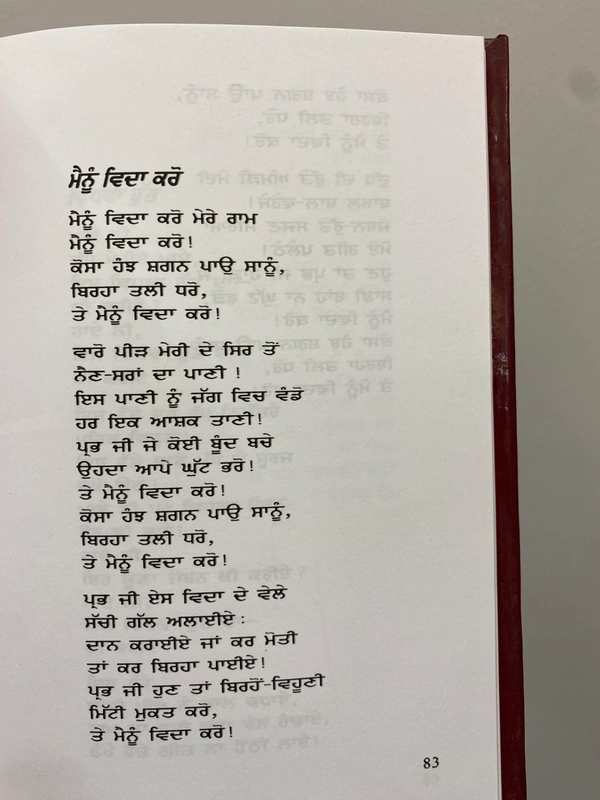 ਮੈਨੂੰ ਵਿਦਾ ਕਰੋ
ਮੈਨੂੰ ਵਿਦਾ ਕਰੋ ਮੇਰੇ ਰਾਮ
ਮੈਨੂੰ ਵਿਦਾ ਕਰੋ!
ਕੋਸਾ ਹੰਝ ਸ਼ਗਨ ਪਾਉ ਸਾਨੂੰ,
ਬਿਰਹਾ ਤਲੀ ਧਰੋ,
ਤੇ ਮੈਨੂੰ ਵਿਦਾ ਕਰੋ!
ਵਾਰੋ ਪੀੜ ਮੇਰੀ ਦੇ ਸਿਰ ਤੋਂ
ਨੈਣ-ਸਰਾਂ ਦਾ ਪਾਣੀ !
ਇਸ ਪਾਣੀ ਨੂੰ ਜੱਗ ਵਿਚ ਵੰਡੋ
ਹਰ ਇਕ ਆਸ਼ਕ ਤਾਣੀ!
ਪ੍ਰਭ ਜੀ ਜੇ ਕੋਈ ਬੂੰਦ ਬਚੇ
ਉਹਦਾ ਆਪੇ ਘੁੱਟ ਭਰੋ!
ਤੇ ਮੈਨੂੰ ਵਿਦਾ ਕਰੋ!
ਕੋਸਾ ਹੰਝ ਸ਼ਗਨ ਪਾਉ ਸਾਨੂੰ,
ਬਿਰਹਾ ਤਲੀ ਧਰੋ,
ਤੇ ਮੈਨੂੰ ਵਿਦਾ ਕਰੋ!
ਪ੍ਰਭ ਜੀ ਏਸ ਵਿਦਾ ਦੇ ਵੇਲੇ
ਸੱਚੀ ਗੱਲ ਅਲਾਈਏ:
ਦਾਨ ਕਰਾਈਏ ਜਾਂ ਕਰ ਮੋਤੀ
ਤਾਂ ਕਰ ਬਿਰਹਾ ਪਾਈਏ!
ਪ੍ਰਭ ਜੀ ਹੁਣ ਤਾਂ ਬਿਰਹੋਂ-ਵਿਹੂਣੀ
ਮਿੱਟੀ ਮੁਕਤ ਕਰੋ,
ਤੇ ਮੈਨੂੰ ਵਿਦਾ ਕਰੋ!
83